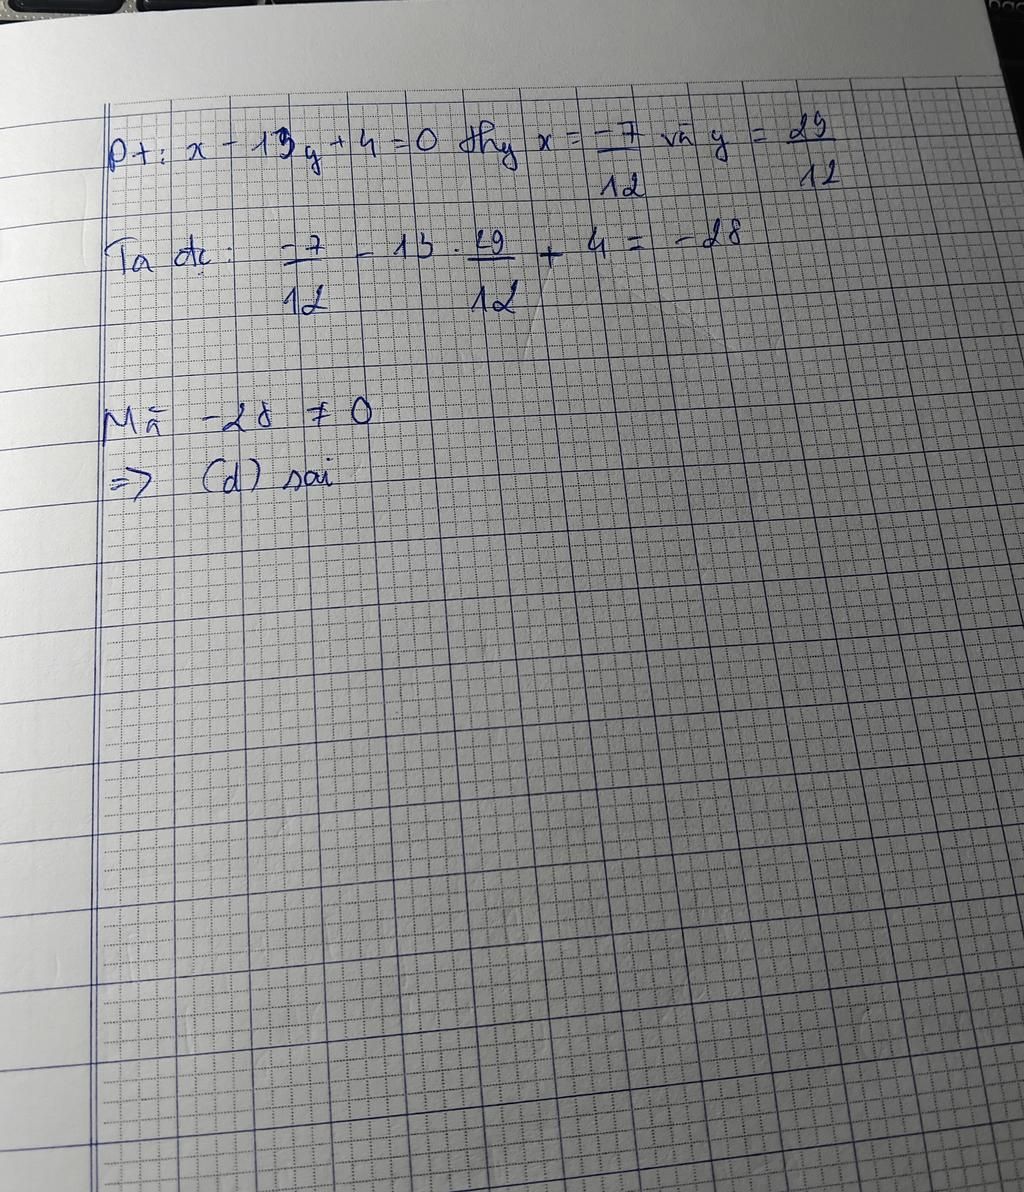 Pt: x - 13y + 4 = 0 thy x = -7/12 và y = 29/12
Ta đc: -7/12 - 13 . 29/12 + 4 = -28
Mà -28 ≠ 0
=> (d) sai